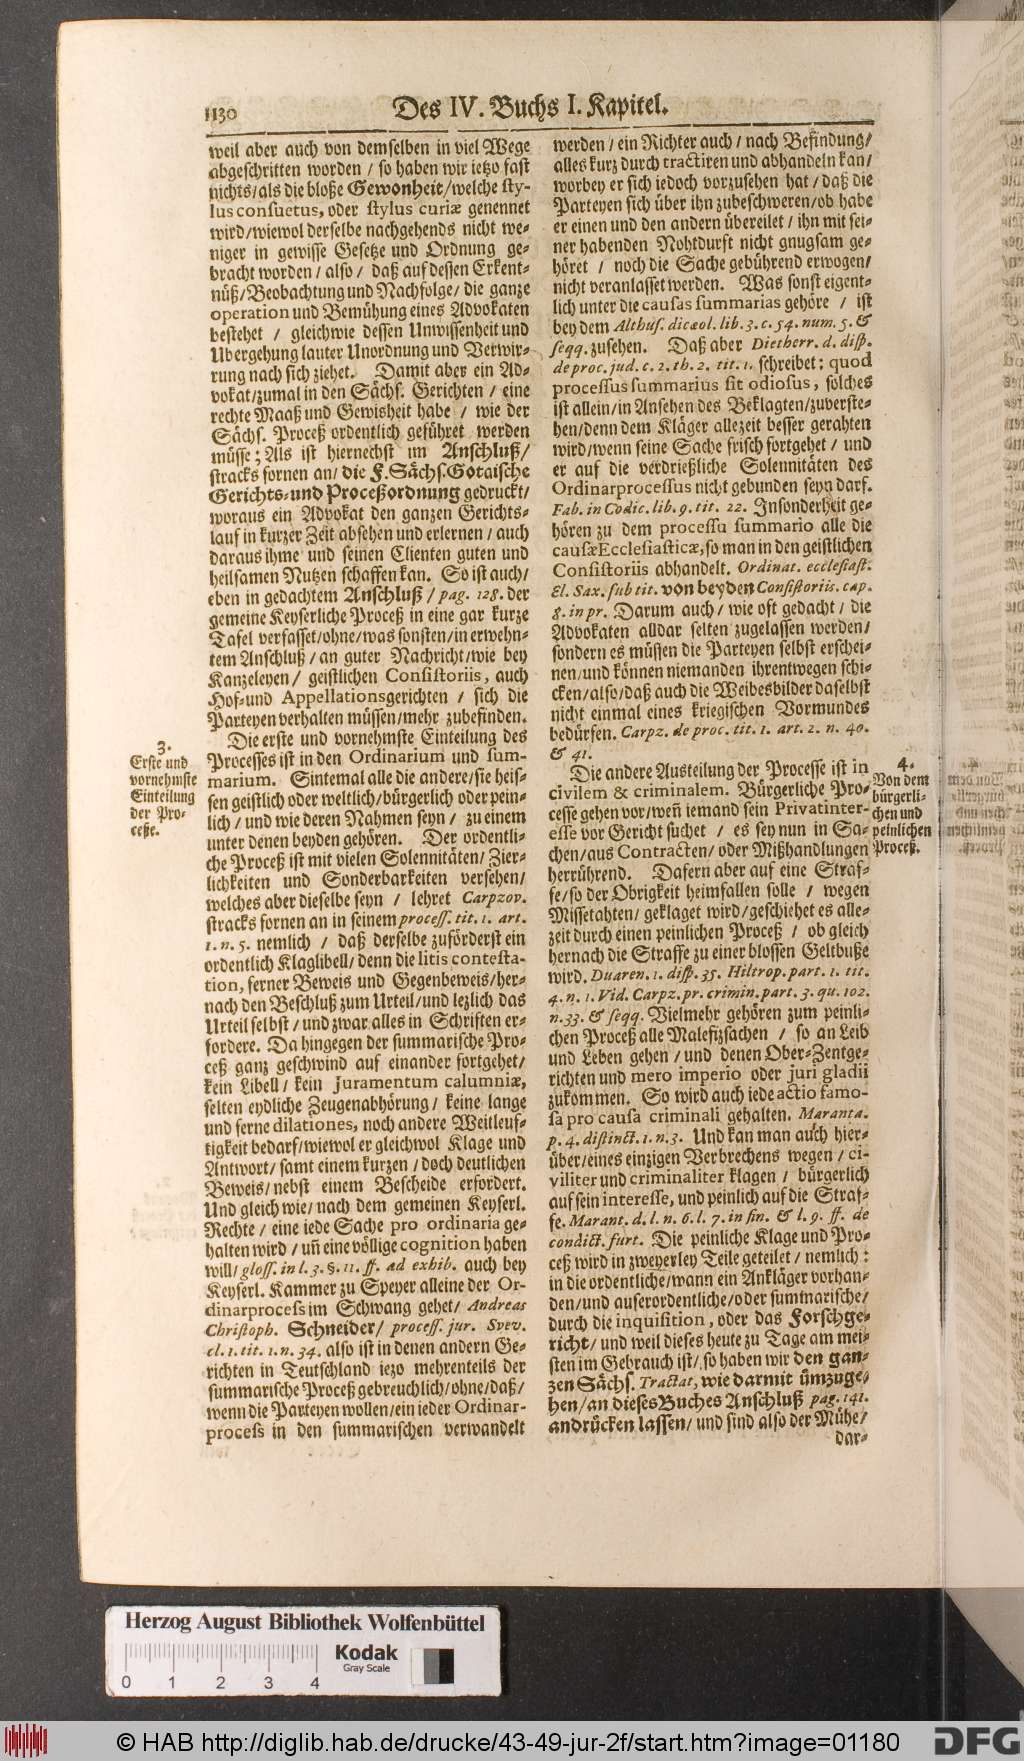 1130
Des IV. Buchs I. Kapitel.
weil aber auch von demselben in viel Wege
abgeschritten worden / so haben wir ietzo fast
nichts/als die bloße Gewonheit/welche sty-
lus consuetus, oder stylus curiæ genennet
wird/wiewol derselbe nachgehends nicht we-
niger in gewisse Gesetze und Ordnung ge-
bracht worden / also / daß auf dessen Erkent-
nüß/Beobachtung und Nachfolge/ die ganze
operation und Bemühung eines Advokaten
bestehet / gleichwie dessen Unwissenheit und
Ubergehung lauter Unordnung und Verwir-
rung nach sich ziehet. Damit aber ein Ad-
vokat/zumal in den Sächs. Gerichten / eine
rechte Maaß und Gewisheit habe / wie der
Sächs. Proceß ordentlich geführet werden
müsse; Als ist hiernechst im Anschluß/
stracks fornen an/ die F.Sächs.Gotaische
Gerichts-und Proceßordnung gedruckt/
woraus ein Advokat den ganzen Gerichts-
lauf in kurzer Zeit absehen und erlernen / auch
daraus ihme und seinen Clienten guten und
heilsamen Nutzen schaffen kan. So ist auch/
eben in gedachtem Anschluß / pag. 128. der
gemeine Keyserliche Proceß in eine gar kurze
Tafel verfasset/ohne/was sonsten/in erwehn-
tem Anschluß / an guter Nachricht/wie bey
Kanzeleyen / geistlichen Consistoriis, auch
Hof-und Appellationsgerichten / sich die
Parteyen verhalten müssen/mehr zubefinden.
3.
Erste und
vornehmste
Einteilung
der Pro-
cesse.
Die erste und vornehmste Einteilung des
Processes ist in den Ordinarium und sum-
marium. Sintemal alle die andere/sie heis-
sen geistlich oder weltlich/bürgerlich oder pein-
lich / und wie deren Nahmen seyn / zu einem
unter denen beyden gehören. Der ordentli-
che Proceß ist mit vielen Solennitäten/ Zier-
lichkeiten und Sonderbarkeiten versehen/
welches aber dieselbe seyn / lehret Carpzov.
stracks fornen an in seinem process. tit. 1. art.
1. n. 5. nemlich / daß derselbe zuförderst ein
ordentlich Klaglibell/ denn die litis contesta-
tion, ferner Beweis und Gegenbeweis/her-
nach den Beschluß zum Urteil/und lezlich das
Urteil selbst / und zwar alles in Schriften er-
fordere. Da hingegen der summarische Pro-
ceß ganz geschwind auf einander fortgehet/
kein Libell / kein juramentum calumniæ,
selten eydliche Zeugenabhörung / keine lange
und ferne dilationes, noch andere Weitleuf-
tigkeit bedarf/wiewol er gleichwol Klage und
Antwort/ samt einem kurzen / doch deutlichen
Beweis/ nebst einem Bescheide erfordert.
Und gleich wie/ nach dem gemeinen Keyserl.
Rechte / eine iede Sache pro ordinaria ge-
halten wird / uñ eine völlige cognition haben
will/ gloss. in l. 3. §. 11. ff. ad exhib. auch bey
Keyserl. Kammer zu Speyer alleine der Or-
dinarprocess im Schwang gehet/ Andreas
Christoph. Schneider/ process. jur. Spev.
cl. 1. tit. 1. n. 34. also ist in denen andern Ge-
richten in Teutschland iezo mehrenteils der
summarische Proceß gebreuchlich/ohne/daß/
wenn die Parteyen wollen/ein ieder Ordinar-
process in den summarischen verwandelt
werden / ein Richter auch / nach Befindung/
alles kurz durch tractiren und abhandeln kan/
worbey er sich iedoch vorzusehen hat / daß die
Parteyen sich über ihn zubeschweren/ob habe
er einen und den andern übereilet / ihn mit sei-
ner habenden Nohtdurft nicht gnugsam ge-
höret / noch die Sache gebührend erwogen/
nicht veranlasset werden. Was sonst eigent-
lich unter die causas summarias gehöre / ist
bey dem Althus. dicæol. lib. 3. c. 54. num. 5. &
seqq. zusehen. Daß aber Dietherr. d. disp.
de proc. jud. c. 2. th. 2. tit. 1. schreibet: quod
processus summarius sit odiosus, solches
ist allein/in Ansehen des Beklagten/zuverste-
hen/denn dem Kläger allezeit besser gerahten
wird/wenn seine Sache frisch fortgehet / und
er auf die verdrießliche Solennitäten des
Ordinarprocessus nicht gebunden seyn darf.
Fab. in Codic. lib. 9. tit. 22. Insonderheit ge-
hören zu dem processu summario alle die
causæ Ecclesiasticæ, so man in den geistlichen
Consistoriis abhandelt. Ordinat. ecclesiast.
El. Sax. sub tit. von beyden Consistoriis. cap.
8. in pr. Darum auch / wie oft gedacht / die
Advokaten alldar selten zugelassen werden/
sondern es müssen die Parteyen selbst erschei-
nen/und können niemanden ihrentwegen schi-
cken/also/daß auch die Weibesbilder daselbst
nicht einmal eines kriegischen Vormundes
bedürfen. Carpz. de proc. tit. 1. art. 2. n. 40.
& 41.
4.
Von dem
bürgerli-
chen und
peinlichen
Proceß.
Die andere Austeilung der Processe ist in
civilem & criminalem. Bürgerliche Pro-
cesse gehen vor/weñ iemand sein Privatinter-
esse vor Gericht suchet / es sey nun in Sa-
chen/aus Contracten/ oder Mißhandlungen
herrührend. Dafern aber auf eine Straf-
fe/so der Obrigkeit heimfallen solle / wegen
Missetahten/ geklaget wird/geschiehet es alle-
zeit durch einen peinlichen Proceß / ob gleich
hernach die Straffe zu einer blossen Geltbuße
wird. Duaren. 1. disp. 35. Hiltrop. part. 1. tit.
4. n. 1. Vid. Carpz. pr. crimin. part. 3. qu. 102.
n. 33. & seqq. Vielmehr gehören zum peinli-
chen Proceß alle Malefizsachen / so an Leib
und Leben gehen / und denen Ober-Zentge-
richten und mero imperio oder juri gladii
zukommen. So wird auch iede actio famo-
sa pro causa criminali gehalten. Maranta.
p. 4. distinct. 1. n. 3. Und kan man auch hier-
über/eines einzigen Verbrechens wegen / ci-
viliter und criminaliter klagen / bürgerlich
auf sein interesse, und peinlich auf die Straf-
fe. Marant. d. l. n. 6. l. 7. in fin. & l. 9. ff. de
condict. furt. Die peinliche Klage und Pro-
ceß wird in zweyerley Teile geteilet / nemlich:
in die ordentliche/wann ein Ankläger vorhan-
den/und auserordentliche/oder summarische/
durch die inquisition, oder das Forschge-
richt/ und weil dieses heute zu Tage am mei-
sten im Gebrauch ist/ so haben wir den gan-
zen Sächs. Tractat, wie darmit ümzuge-
hen/an dieses Buches Anschluß pag. 141.
andrücken lassen/ und sind also der Mühe/
dar-
Herzog August Bibliothek Wolfenbüttel
Kodak
Gray Scale
0 1 2 3 4
© HAB http://diglib.hab.de/drucke/43-49-jur-2f/start.htm?image=01180
DFG